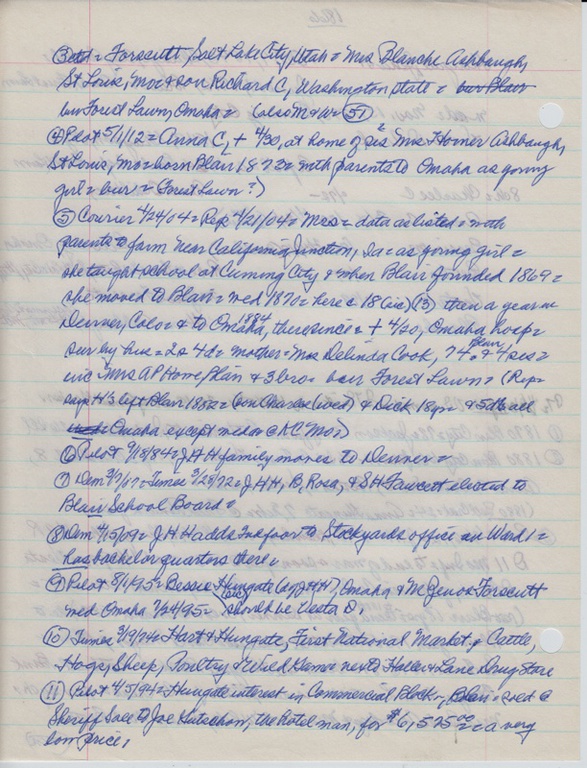 Forscutt, Salt Lake City, Utah = Mrs Blanche Ashbaugh,
St Louis, Mo & son Richard C, Washington state =
bur Forest Lawn, Omaha = (also M & W = 51)
④ Pilot 5/1/12 = Anna C, + 4/30, at home of sis Mrs Homer Ashbaugh,
St Louis, Mo = born Blair 1873 = mth parents to Omaha as young
girl = bur = Forest Lawn ?)
⑤ Courier 4/24/04 = Rep 4/21/04 = Mrs = data as listed = with
parents to farm near California Junction, Ia = as young girl =
she taught school at Cuming City & when Blair founded 1869 =
she moved to Blair = med 1870 = here = 18 (sic) (13) then a year in
Denver, Colo = & to Omaha, 1884 there since = + 4/20, Omaha hosp =
sur by hus = 2s 4d = mother = Mrs Delinda Cook, 74, Blair & 4 sis =
inc Mrs A P Home, Blair & 3 bro = bur Forest Lawn = (Rep =
says H's left Blair 1882 = son Charles (wed) & Dick 18 yr = & 5 dts all
Omaha except Mrs K C Mo?)
⑥ Pilot 9/18/84 = J H H family moves to Denver =
⑦ Dem 3/7/17 = Times 3/28/72 = J H H, B, Rosa, & S H Faucett elected to
Blair School Board =
⑧ Dem 4/15/09 = J H H adds 2nd floor to Stockyards office in Ward 1 =
has bachelor quarters there =
⑨ Pilot 8/1/95 = Bessie Hungate (sic) (dt J H H), Omaha & M Genor Forscutt
med Omaha 7/24/95 = should be Vesta D,
⑩ Times 3/19/74 = Hart & Hungate, First National Market = Cattle,
Hogs, Sheep, Poultry & Wild Game next to Haller & Lane Drug Store
⑪ Pilot 4/5/94 = Hungate interest in Commercial Block, Blair = sold @
Sheriff Sale to Joe Kutschera, the hotel man, for $6,525.00 = a very
low price,